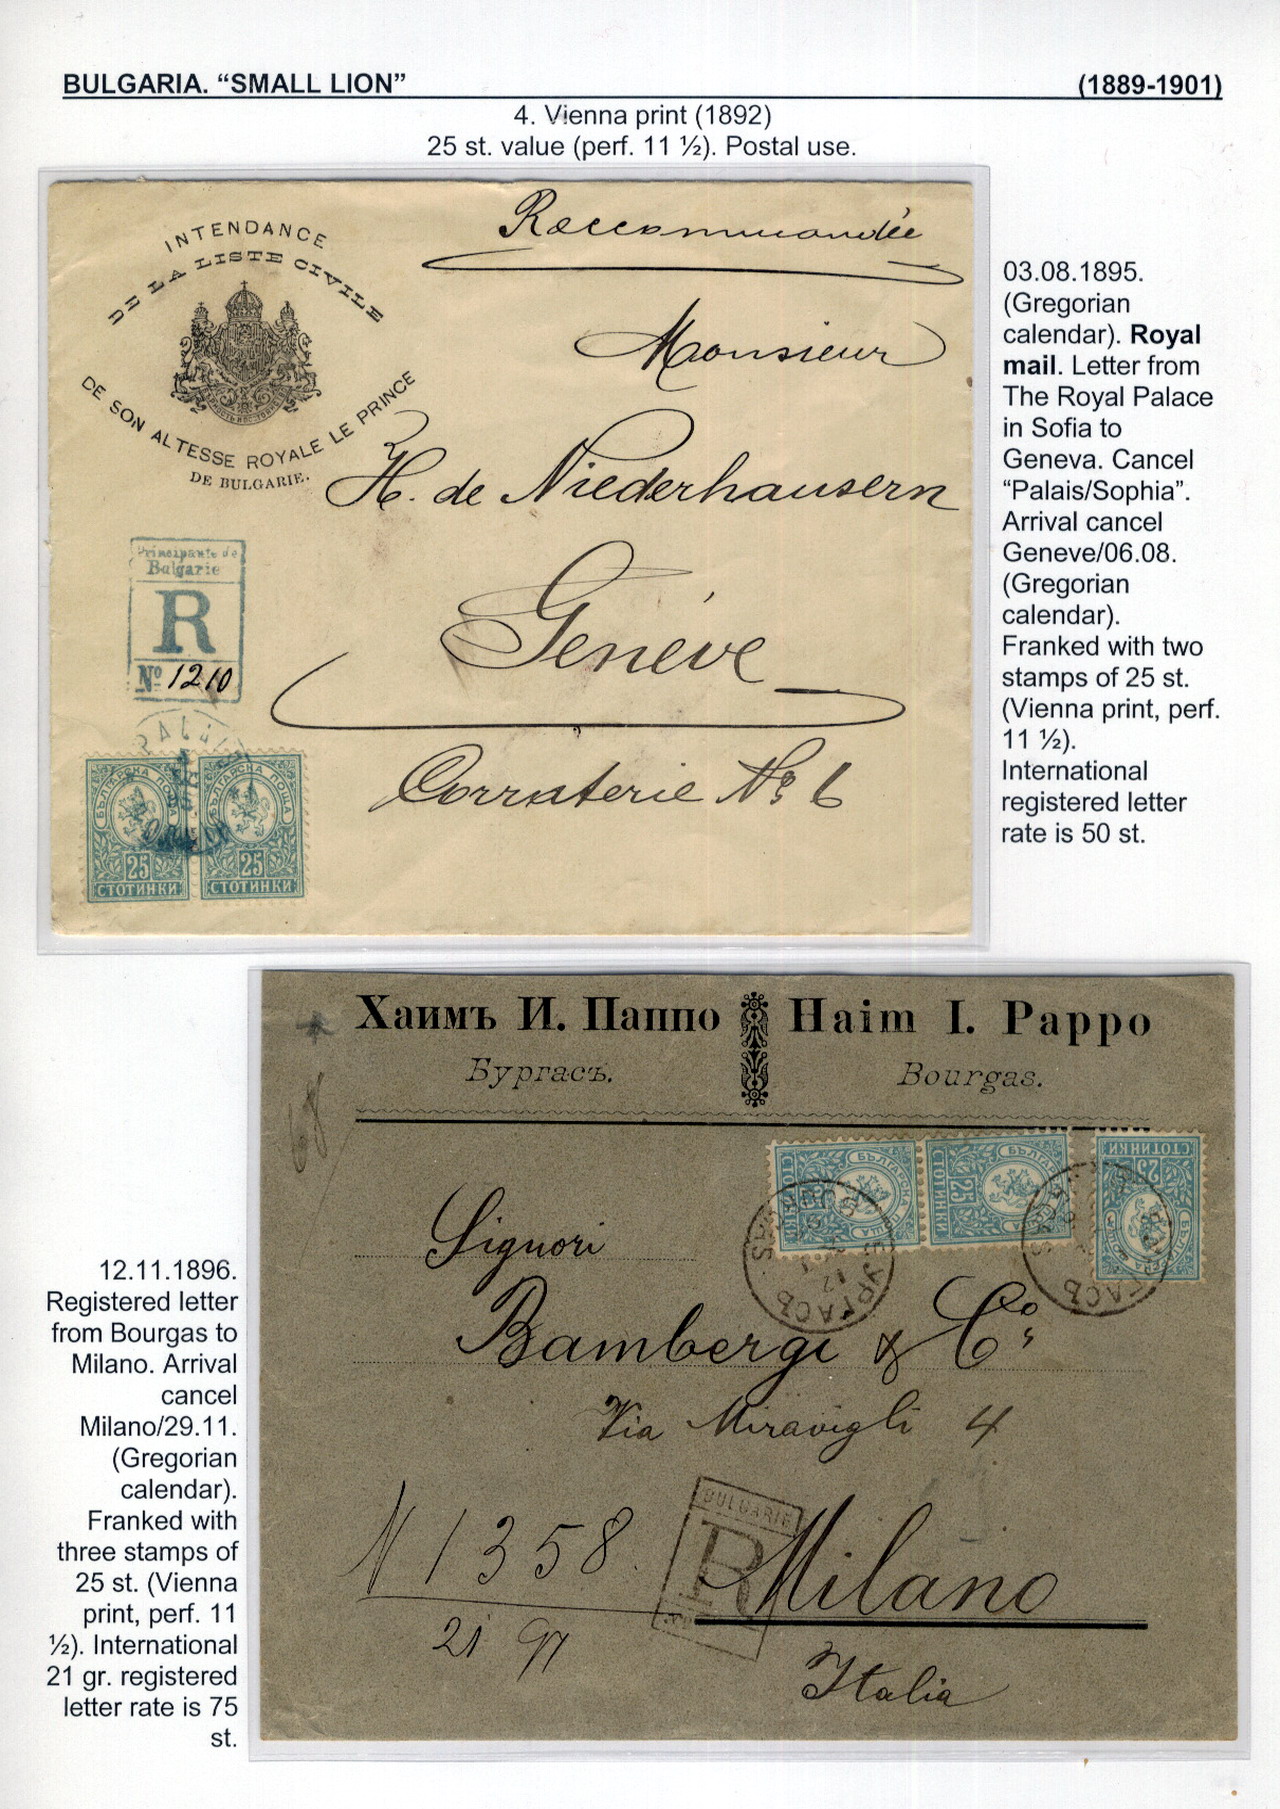 BULGARIA. “SMALL LION” (1889-1901)
4. Vienna print (1892)
25 st. value (perf. 11 ½). Postal use.
INTENDANCE
DE LA LISTE CIVILE
DE SON ALTESSE ROYALE LE PRINCE
DE BULGARIE.
Reccommandée
Monsieur
H. de Niederhausern
Genève
Corraterie No 6
Principaute de
Bulgarie
R
No 1210
БЪЛГАРСКА ПОЩА
25
СТОТИНКИ
БЪЛГАРСКА ПОЩА
25
СТОТИНКИ
03.08.1895.
(Gregorian
calendar). Royal
mail. Letter from
The Royal Palace
in Sofia to
Geneva. Cancel
“Palais/Sophia”.
Arrival cancel
Geneve/06.08.
(Gregorian
calendar).
Franked with two
stamps of 25 st.
(Vienna print, perf.
11 ½).
International
registered letter
rate is 50 st.
Хаимъ И. Паппо
Бургасъ.
Haim I. Pappo
Bourgas.
68
25
СТОТИНКИ
25
СТОТИНКИ
Signori
Bambergi & Co
Via Miravigli 4
N 1358
21 97
BULGARIE
R
Milano
Italia
12.11.1896.
Registered letter
from Bourgas to
Milano. Arrival
cancel
Milano/29.11.
(Gregorian
calendar).
Franked with
three stamps of
25 st. (Vienna
print, perf. 11
½). International
21 gr. registered
letter rate is 75
st.